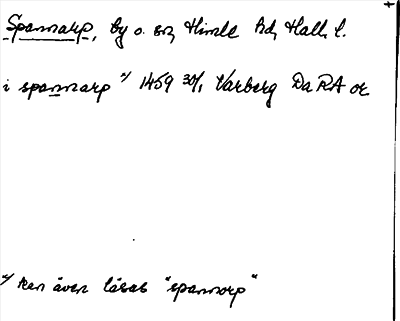 Spannarp, by o. sn, Himle hd, Hall. l.
i spannarp x/ 1459 30/1 Varberg Da RA or
x/ kan även läsas "spannorp"